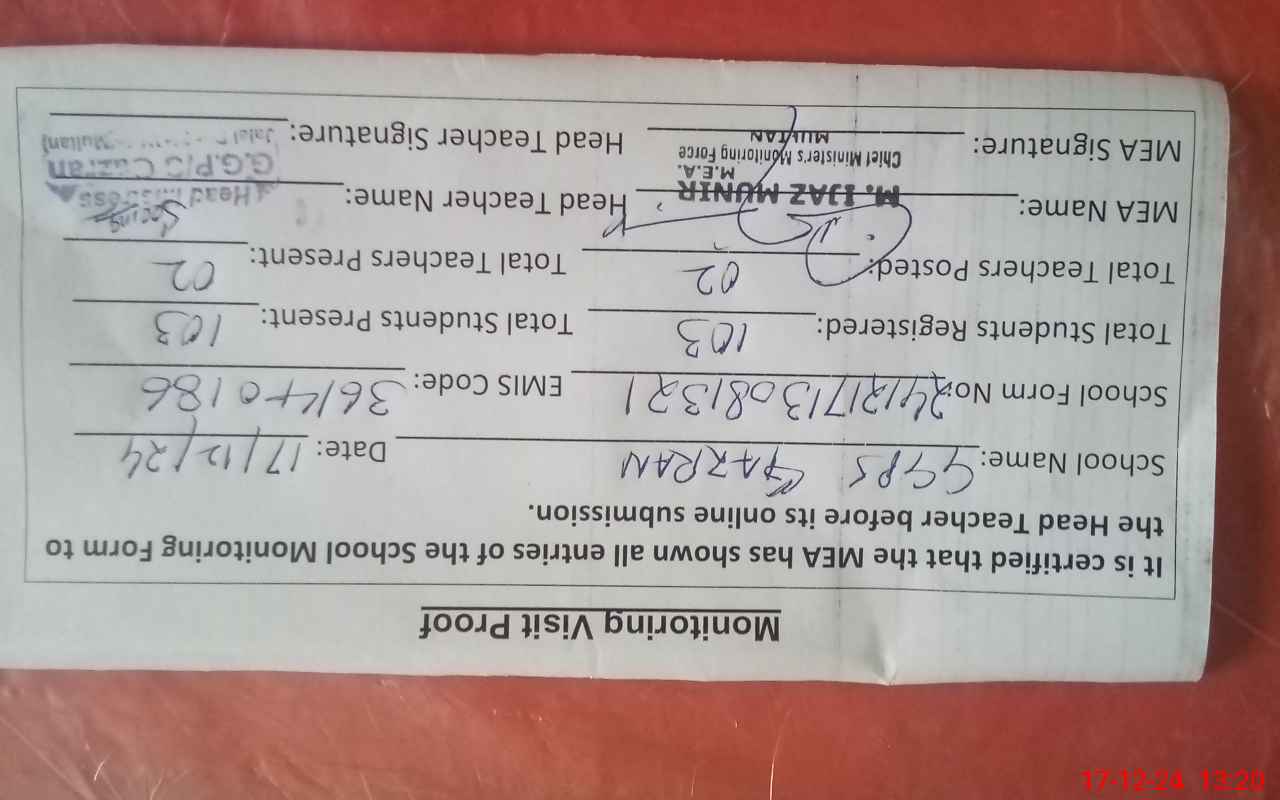 Monitoring Visit Proof
It is certified that the MEA has shown all entries of the School Monitoring Form to
the Head Teacher before its online submission.
School Name: GGPS GAZRAN Date: 17/12/24
School Form No: 24121713081321 EMIS Code: 36140186
Total Students Registered: 103 Total Students Present: 103
Total Teachers Posted: 02 Total Teachers Present: 02
MEA Name: M. IJAZ MUNIR Head Teacher Name: Head
M.E.A. G.G.P/S
Chief Minister's Monitoring Force
MEA Signature: MULTAN Head Teacher Signature: Jalal Multan
17-12-24 13:20